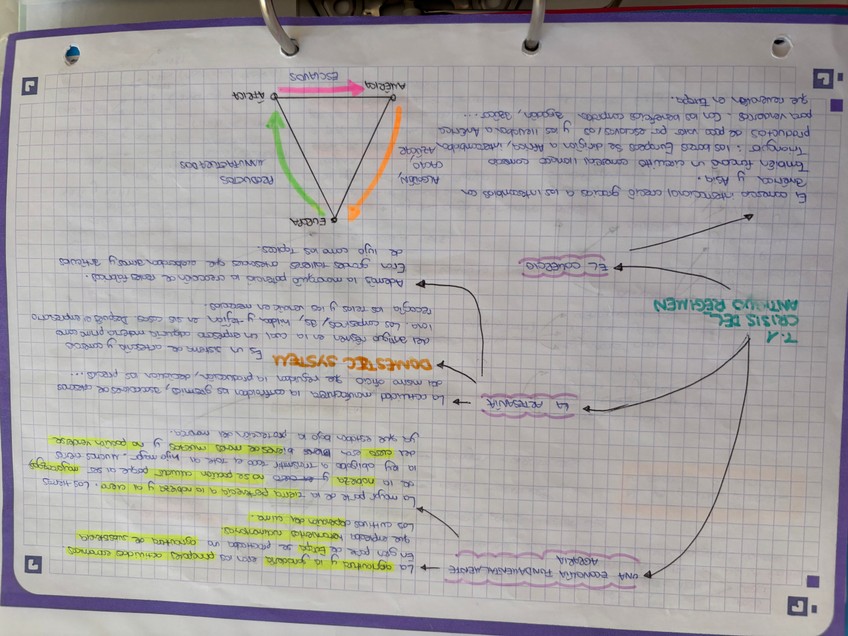 T.1
CRISIS DEL
ANTIGUO RÉGIMEN
UNA ECONOMÍA FUNDAMENTALMENTE
AGRARIA
La agricultura y la ganadería eran las principales actividades económicas
En gran parte de Europa se practicaba una agricultura de subsistencia
que empleaba herramientas rudimentarias.
Los cultivos dependían del clima.
La mayor parte de la tierra pertenecía a la nobleza y al clero. Las tierras
de la nobleza no se podían dividir porque al ser mayorazgos
la ley obligaba a transmitir todo el lote al hijo mayor.
del clero eran bienes de manos muertas y no podían venderse
ya que estaban bajo protección del monarca.
LA ARTESANÍA
La actividad manufacturera la controlaban gremios, asociaciones de artesanos
del mismo oficio que regulaban la producción, decidían los precios...
DOMESTEC SYSTEM
Es un sistema de artesanía y comercio
del antiguo régimen en la cual un empresario adquiría materia prima como
lana. Los campesinos, las hilaban y tejían en sus casas. Después el empresario
recogía las telas y las vendía en mercados.
Además la monarquía potenció la creación de reales fábricas.
Eran grandes talleres artesanos que elaboraban armas y artículos
de lujo como los tapices.
EL COMERCIO
El comercio internacional creció gracias a los intercambios con
América y Asia.
También funcionó un circuito comercial llamado comercio
Triangular: los barcos Europeos se dirigían a África, intercambiaban
productos de poco valor por esclavos y los llevaban a América
para venderlos. Con los beneficios compraban algodón, tabaco...
que revendían en Europa.
EUROPA
PRODUCTOS
MANUFACTURADOS
ÁFRICA
ESCLAVOS
AMÉRICA
ALGODÓN,
CACAO,
AZÚCAR